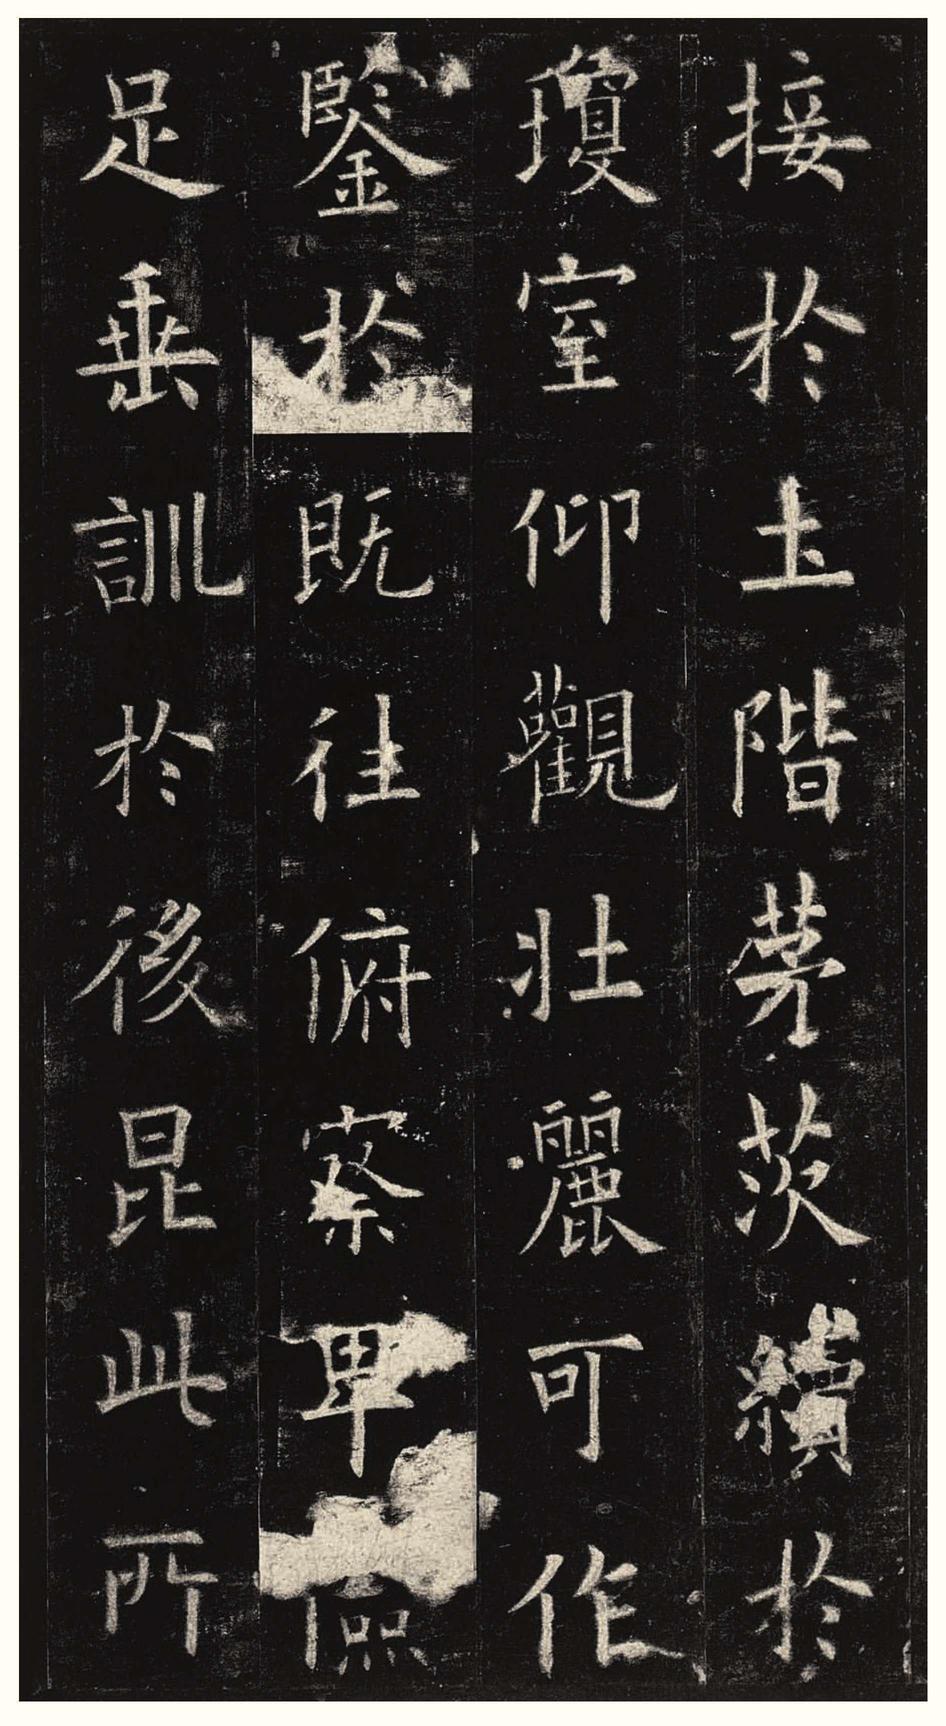 接於土階茅茨續於
瓊室仰觀壯麗可作
鍳於既往俯察卑儉
足垂訓於後昆此所